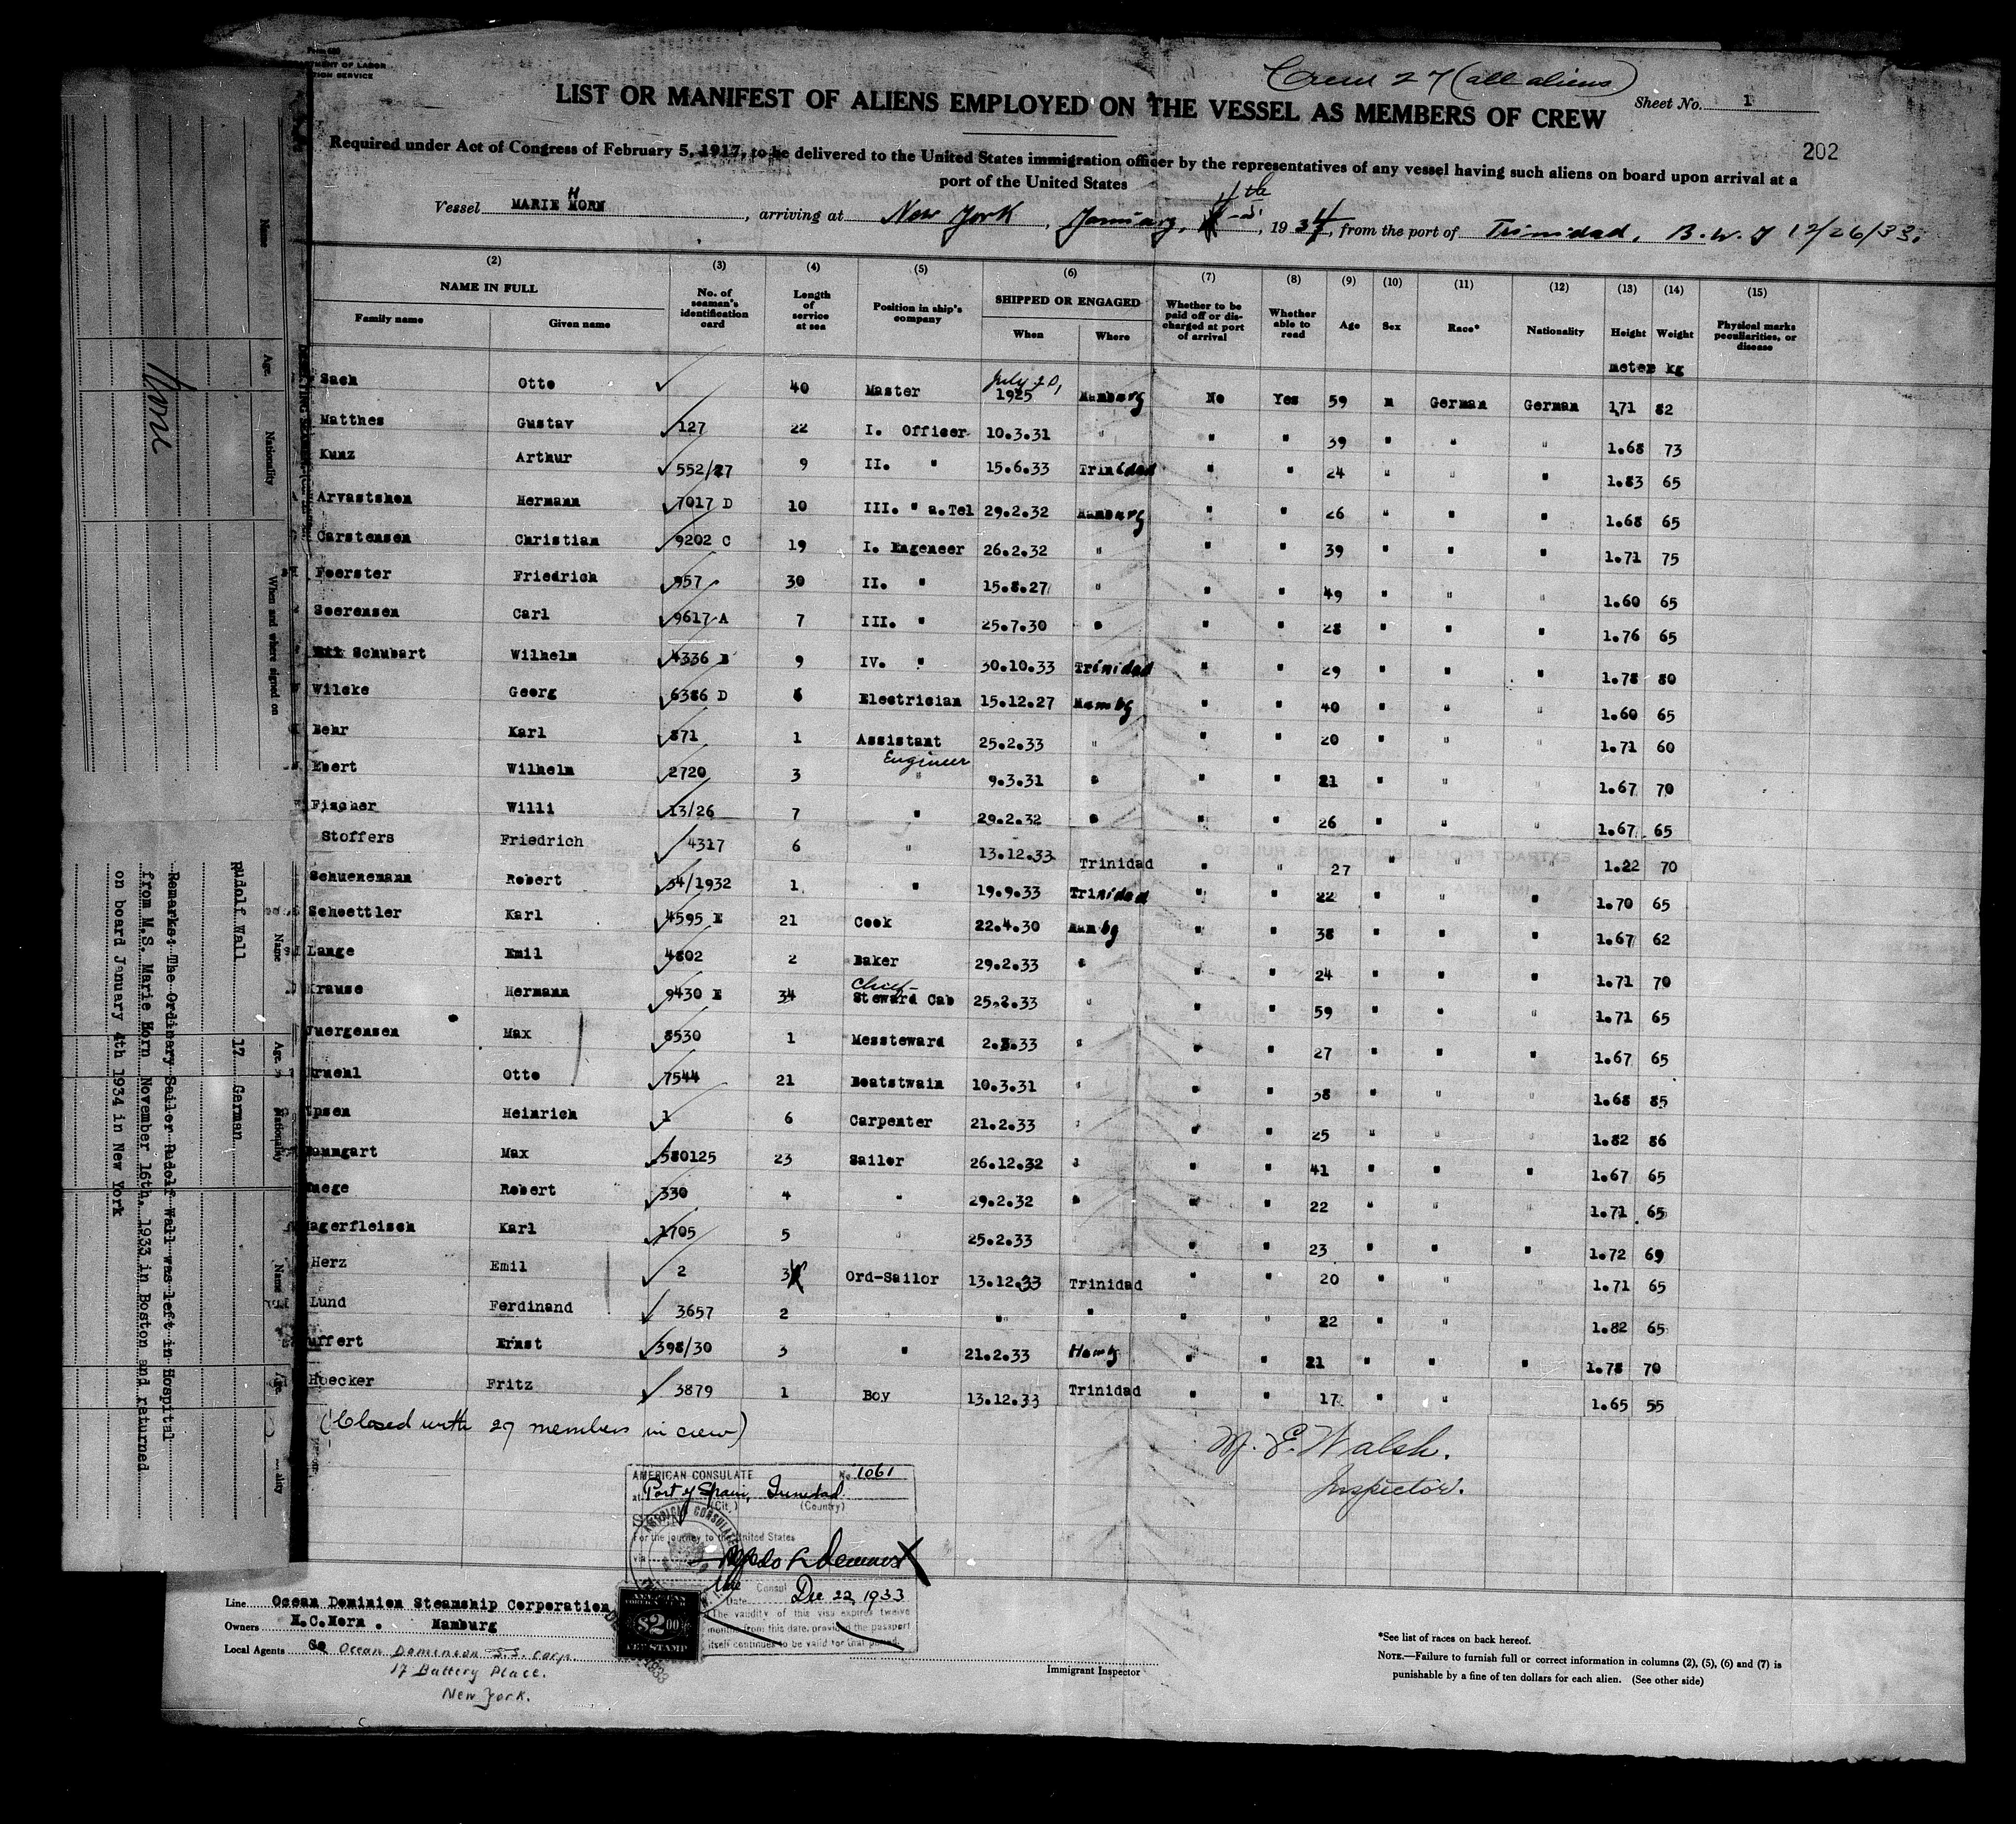 Form 680
DEPARTMENT OF LABOR
IMMIGRATION SERVICE
Crew 27 (all aliens)
LIST OR MANIFEST OF ALIENS EMPLOYED ON THE VESSEL AS MEMBERS OF CREW
Sheet No. 1
202
Required under Act of Congress of February 5, 1917, to be delivered to the United States immigration officer by the representatives of any vessel having such aliens on board upon arrival at a
port of the United States
Vessel MARIE HORN, arriving at New York, January, 4th, 1934, from the port of Trinidad, B.W.I 12/26/33.
(2) (3) (4) (5) (6) (7) (8) (9) (10) (11) (12) (13) (14) (15)
NAME IN FULL No. of seaman's identification card Length of service at sea Position in ship's company SHIPPED OR ENGAGED Whether to be paid off or discharged at port of arrival Whether able to read Age Sex Race* Nationality Height Weight Physical marks peculiarities, or disease
Family name Given name When Where
meter kg
Sach Otto 40 Master July 20, 1925 Hamburg No Yes 59 m German German 1,71 82
Matthes Gustav 127 22 I. Officer 10.3.31 " " " 39 " " " 1.68 73
Kunz Arthur 552/27 9 II. " 15.6.33 Trinidad " " 24 " " " 1.83 65
Arvastshen Hermann 7017 D 10 III. " a.Tel 29.2.32 Hamburg " " 26 " " " 1.68 65
Carstensen Christian 9202 C 19 I. Engeneer 26.2.32 " " " 39 " " " 1.71 75
Foerster Friedrich 957 30 II. " 15.8.27 " " " 49 " " " 1.60 65
Soerensen Carl 9617 A 7 III. " 25.7.30 " " " 28 " " " 1.76 65
Schubart Wilhelm 4336 9 IV. " 30.10.33 Trinidad " " 29 " " " 1.78 80
Wilcke Georg 6386 D 6 Electrician 15.12.27 Hambg " " 40 " " " 1.60 65
Behr Karl 871 1 Assistant Engineer 25.2.33 " " " 20 " " " 1.71 60
Ebert Wilhelm 2720 3 " 9.3.31 " " " 21 " " " 1.67 70
Fischer Willi 13/26 7 " 29.2.32 " " " 26 " " " 1.67 65
Stoffers Friedrich 4317 6 " 13.12.33 Trinidad " " 27 " " " 1.22 70
Schuenemann Robert 34/1932 1 " 19.9.33 Trinidad " " 22 " " " 1.70 65
Schoettler Karl 4595 E 21 Cook 22.4.30 Hambg " " 38 " " " 1.67 62
Lange Emil 4802 2 Baker 29.2.33 " " " 24 " " " 1.71 70
Krause Hermann 9430 E 34 Chief Steward Cab 25.2.33 " " " 59 " " " 1.71 65
Juergensen Max 8530 1 Messteward 2.3.33 " " " 27 " " " 1.67 65
Otto 7544 21 Boatstwain 10.3.31 " " " 38 " " " 1.68 85
Ipsen Heinrich 1 6 Carpenter 21.2.33 " " " 25 " " " 1.82 86
Baumgart Max 580125 23 Sailor 26.12.32 " " " 41 " " " 1.67 65
Robert 330 4 " 29.2.32 " " " 22 " " " 1.71 65
Hagerfleisch Karl 1705 5 " 25.2.33 " " " 23 " " " 1.72 69
Herz Emil 2 3 Ord-Sailor 13.12.33 Trinidad " " 20 " " 1.71 65
Lund Ferdinand 3657 2 " " " " " 22 " " 1.82 65
Ernst 398/30 3 " 21.2.33 Hambg " " 21 " " " 1.78 70
Hoecker Fritz 3879 1 Boy 13.12.33 Trinidad " " 17 " " 1.65 55
(Closed with 27 members in crew)
M. E. Walsh.
Inspector.
AMERICAN CONSULATE No 1061
at Port of Spain, Trinidad
(City) (Country)
SEEN
For the journey to the United States
via
Vice Consul
Date Dec 22, 1933
The validity of this visa expires twelve
months from this date, provided the passport
itself continues to be valid for that period.
$2.00
FEE STAMP
Line Ocean Dominion Steamship Corporation
Owners H.C.Horn. Hamburg
Local Agents Ocean Dominion S.S. Corp.
17 Battery Place.
New York.
Immigrant Inspector
*See list of races on back hereof.
NOTE.—Failure to furnish full or correct information in columns (2), (5), (6) and (7) is
punishable by a fine of ten dollars for each alien. (See other side)
Name Age. Nationality When and where signed on
None
Name Age. Nationality Name Age.
Rudolf Wall 17 German
Remarks: The Ordinary Sailor Rudolf Wall was left in Hospital
from M.S. Marie Horn November 16th. 1933 in Boston and returned
on board January 4th 1934 in New York